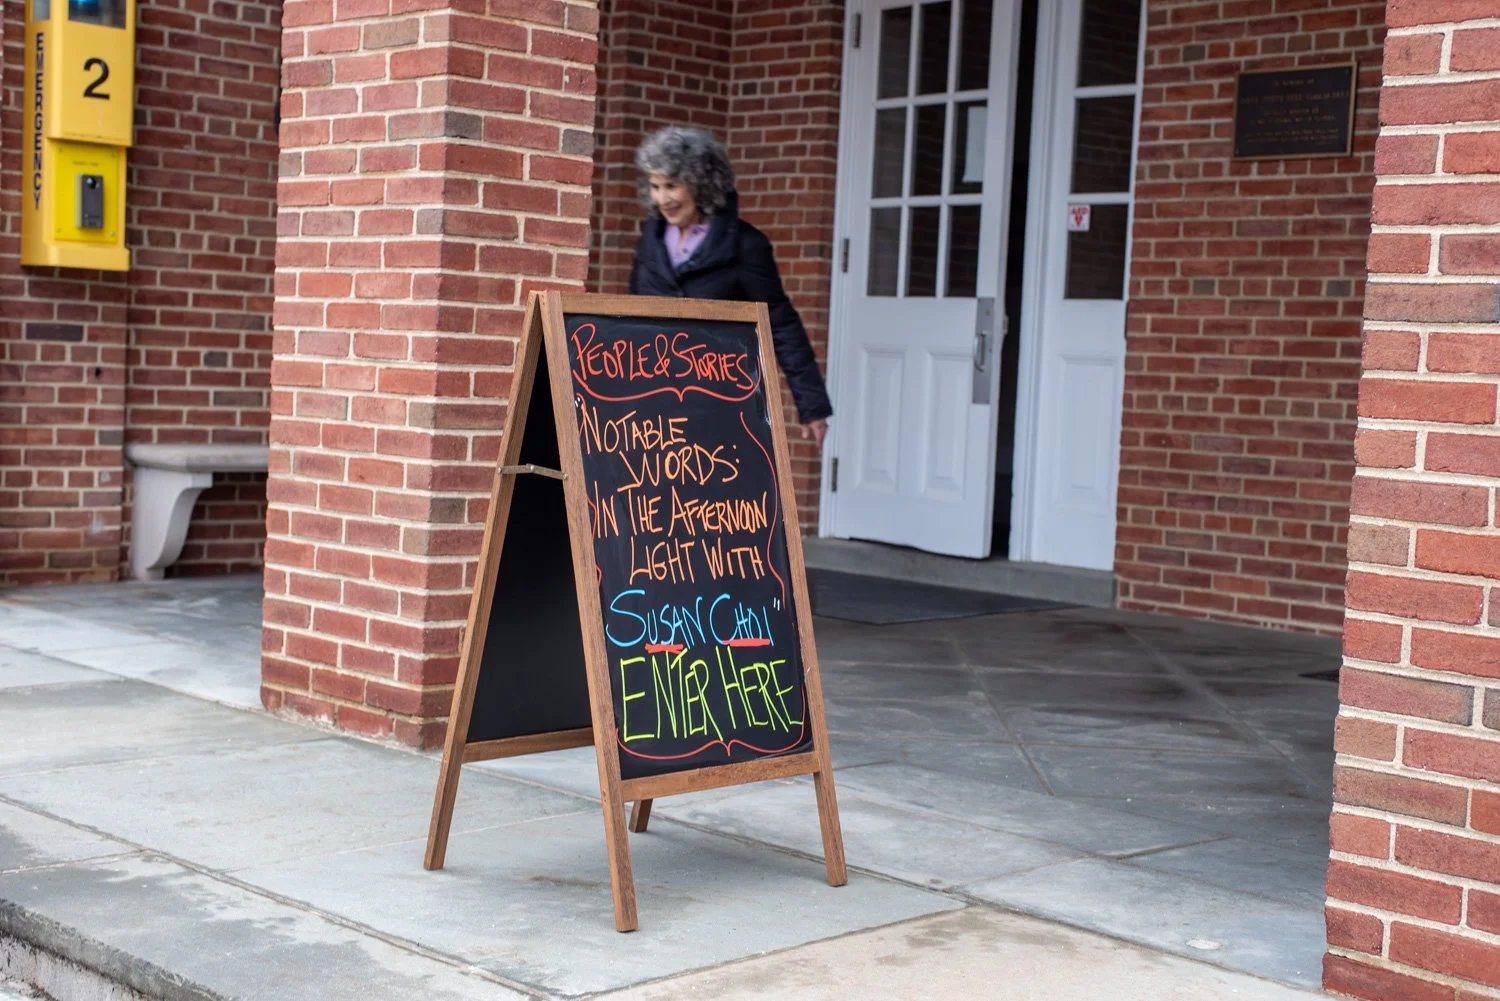 EMERGENCY
2
PEOPLE & STORIES
"NOTABLE
WORDS:
IN THE AFTERNOON
LIGHT WITH
SUSAN CHOI"
ENTER HERE
AED